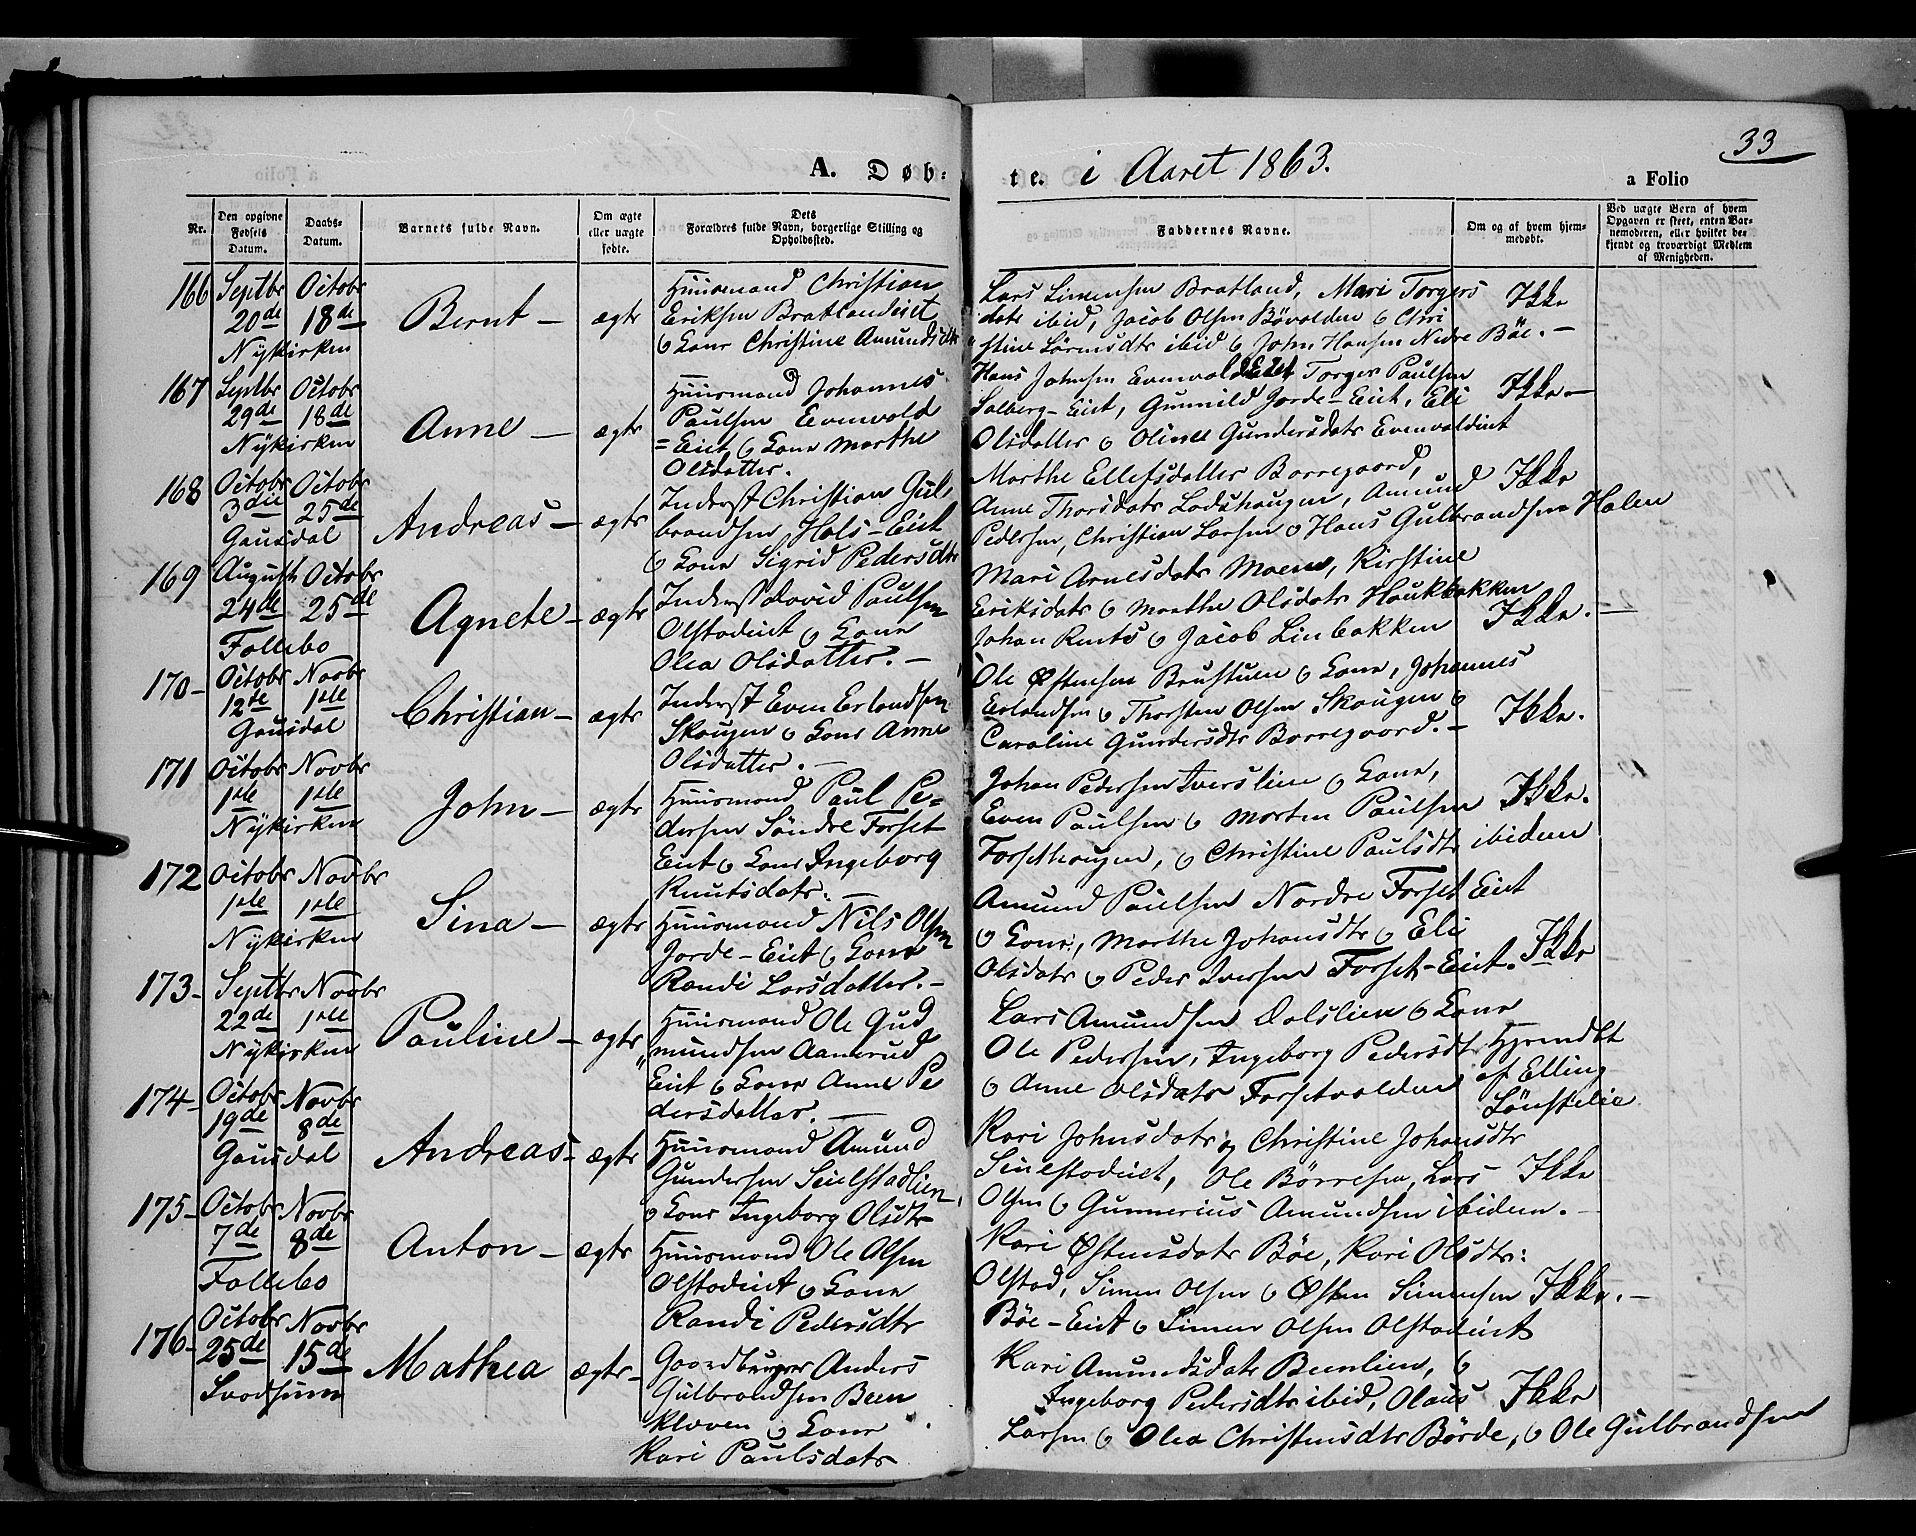 33
A. Døb=
te. i Aaret 1863.
a Folio
Nr.
Den opgivne Fødsels Datum.
Daabs-Datum.
Barnets fulde Navn.
Om ægte eller uægte fødte.
Dets Forældres fulde Navn, borgerlige Stilling og Opholdssted.
Faddernes Navne.
Om og af hvem hjemmedøbt.
Ved uægte Børn af hvem Opgaven er skeet, enten Barnemoderen, eller hvilket bekjendt og troværdigt Medlem af Menigheden.
166 Septbr 20de Octobr 18de Nykirken
Bernt – ægte
Huusmand Christian
Eriksen Bratlandeiet
& Kone Christine Amundsdtr
Lars Simensen Bratland, Mari Torgers
datr ibid, Jacob Olsen Bøvolden & Chri
stine ibid & John Hansen Nedre Bøe. –
Ikke
167 Septbr 29de Octobr 18de Nykirken
Anne – ægte
Huusmand Johannes
Paulsen Evenvold
=Eiet & Kone Marthe
Olsdatter.
Hans Johnsen Evenvoldeiet Torger Paulsen
Solberg-Eiet, Gunnild Jorde-Eiet, Eli
Olsdatter & Oline Gundersdatr Evenvoldeiet
Ikke –
168 Octobr 3die Octobr 25de Gausdal
Andreas – ægte
Inderst Christian Gul
brandsen Hols-Eiet
& Kone Sigrid Pedersdtr
Marthe Ellefsdatter Borregaard,
Anne Thorsdatr Lodshaugen, Amund
Pedersen, Christian Larsen & Hans Gulbrandsen Holen
Ikke
169 August 24de Octobr 25de Follebo
Agnete – ægte
Inderst David Paulsen
Olstadeiet & Kone
Olea Olsdatter. –
Mari Arnesdatr Moene, Kirstine
Eriksdatr & Marthe Olsdatr Haukbakken
Johan & Jacob Linbakken
Ikke. –
170 – Octobr 12te Novbr 1ste Gausdal
Christian – ægte
Inderst Even Erlandsen
Skougen & Kone Anne
Olsdatter. –
Ole Østensen Brustuen & Kone, Johannes
Erlandsen & Thorsten Olsen Skougen &
Caroline Gundersdtr Borregaard. –
Ikke.
171 Octobr 1ste Novbr 1ste Nykirken
John – ægte
Huusmand Paul Pe=
dersen Søndre Forset
Eiet & Kone Ingeborg
Knutsdatr. –
Johan Pedersen Iverslien & Kone,
Even Paulsen & Morten Paulsen
Forsethougen, & Christine Paulsdtr ibidem
Ikke.
172 Octobr 1ste Novbr 1ste Nykirken
Sina – ægte
Huusmand Nils Olsen
Jorde-Eiet & Kone
Randi Larsdatter. –
Amund Paulsen Nordre Forset Eiet
& Kone, Marthe Johansdtr & Eli
Olsdatr & Peder Iversen Forset-Eiet.
Ikke
173 – Septbr 22de Novbr 1ste Nykirken
Pauline – ægte
Huusmand Ole Gud
mundsen Aamerud
Eiet & Kone Anne Pe
dersdatter. –
Lars Amundsen Dalslien & Kone
Ole Pedersen, Ingeborg Pedersdtr
& Anne Olsdatr Forsetvolden
Hjemdbt
af Elling
Lønslie
174 – Octobr 19de Novbr 8de Gausdal
Andreas – ægte
Huusmand Amund
Gundersen Seielstadlien
& Kone Ingeborg Olsdtr
Kari Johnsdatr og Christine Johansdtr
Seielstadeiet, Ole Børresen, Lars
Olsen & Gunnerius Amundsen ibidem. –
Ikke
175 – Octobr 7de Novbr 8de Follebo
Anton – ægte
Huusmand Ole Olsen
Olstadeiet & Kone
Randi Pedersdtr
Kari Østensdatr Bøe, Kari Olsdtr:
Olstad, Simen Olsen & Østen Simensen
Bøe-Eiet & Simen Olsen Olstadeiet
Ikke. –
176 – Octobr 25de Novbr 15de Svadsum
Mathea ægte –
Gaardbruger Anders
Gulbrandsen Been
kloven & Kone
Kari Paulsdatr
Kari Amundsdatr Beenlien, &
Ingeborg Pedersdtr ibid, Olaus
Larsen & Olea Christensdtr Børde, & Ole Gulbrandsen
Ikke